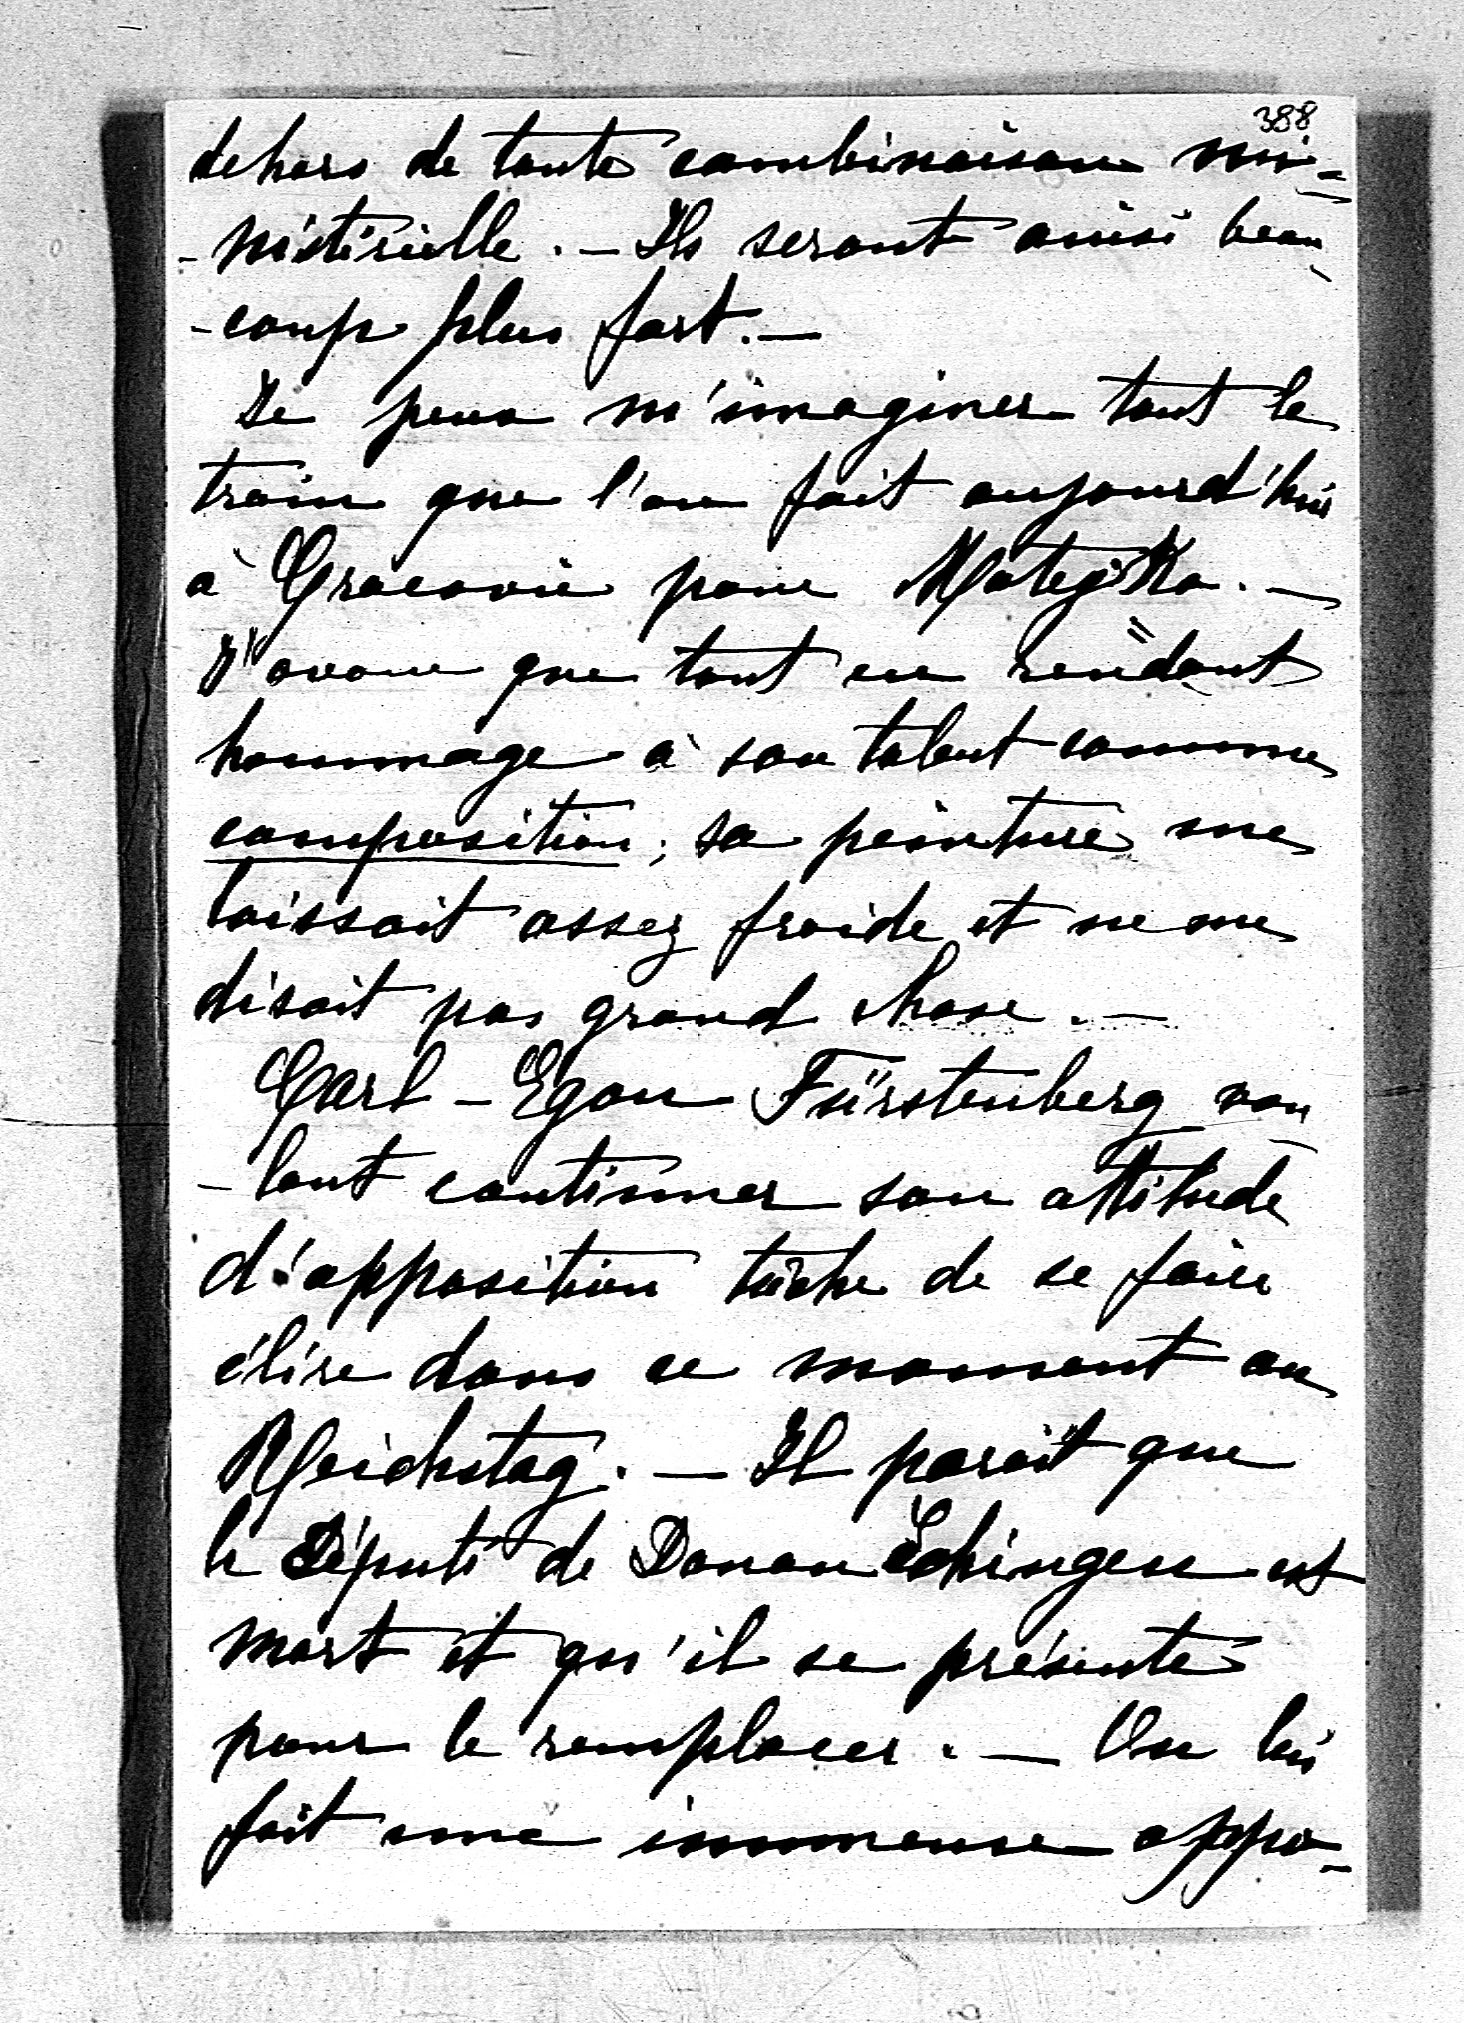 388
dehors de toute combinaison mi-
-nistérielle. — Ils seront ainsi beau-
-coup plus fort. —
Je peux m'imaginer tout le
train que l'on fait aujourd'hui
à Cracovie pour Matejko. —
J'avoue que tout en rendant
hommage à son talent comme
composition; sa peinture me
laissait assez froide et ne me
disait pas grand chose. —
Carl-Egon Fürstenberg vou-
-lant continuer son attitude
d'opposition tâche de se faire
élire dans ce moment au
Reichstag. — Il paraît que
le Député de Donaueschingen est
mort et qu'il se présente
pour le remplacer. — On lui
fait une immense oppo-